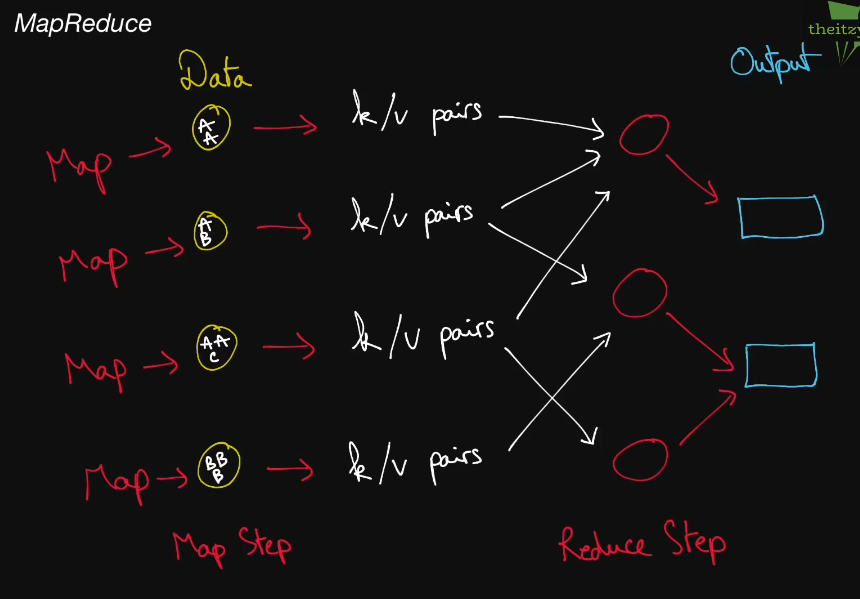 MapReduce
theitzy
Data
Output
Map
A
A
k/v pairs
Map
A
B
k/v pairs
Map
AA
C
k/v pairs
Map
BB
B
k/v pairs
Map Step
Reduce Step